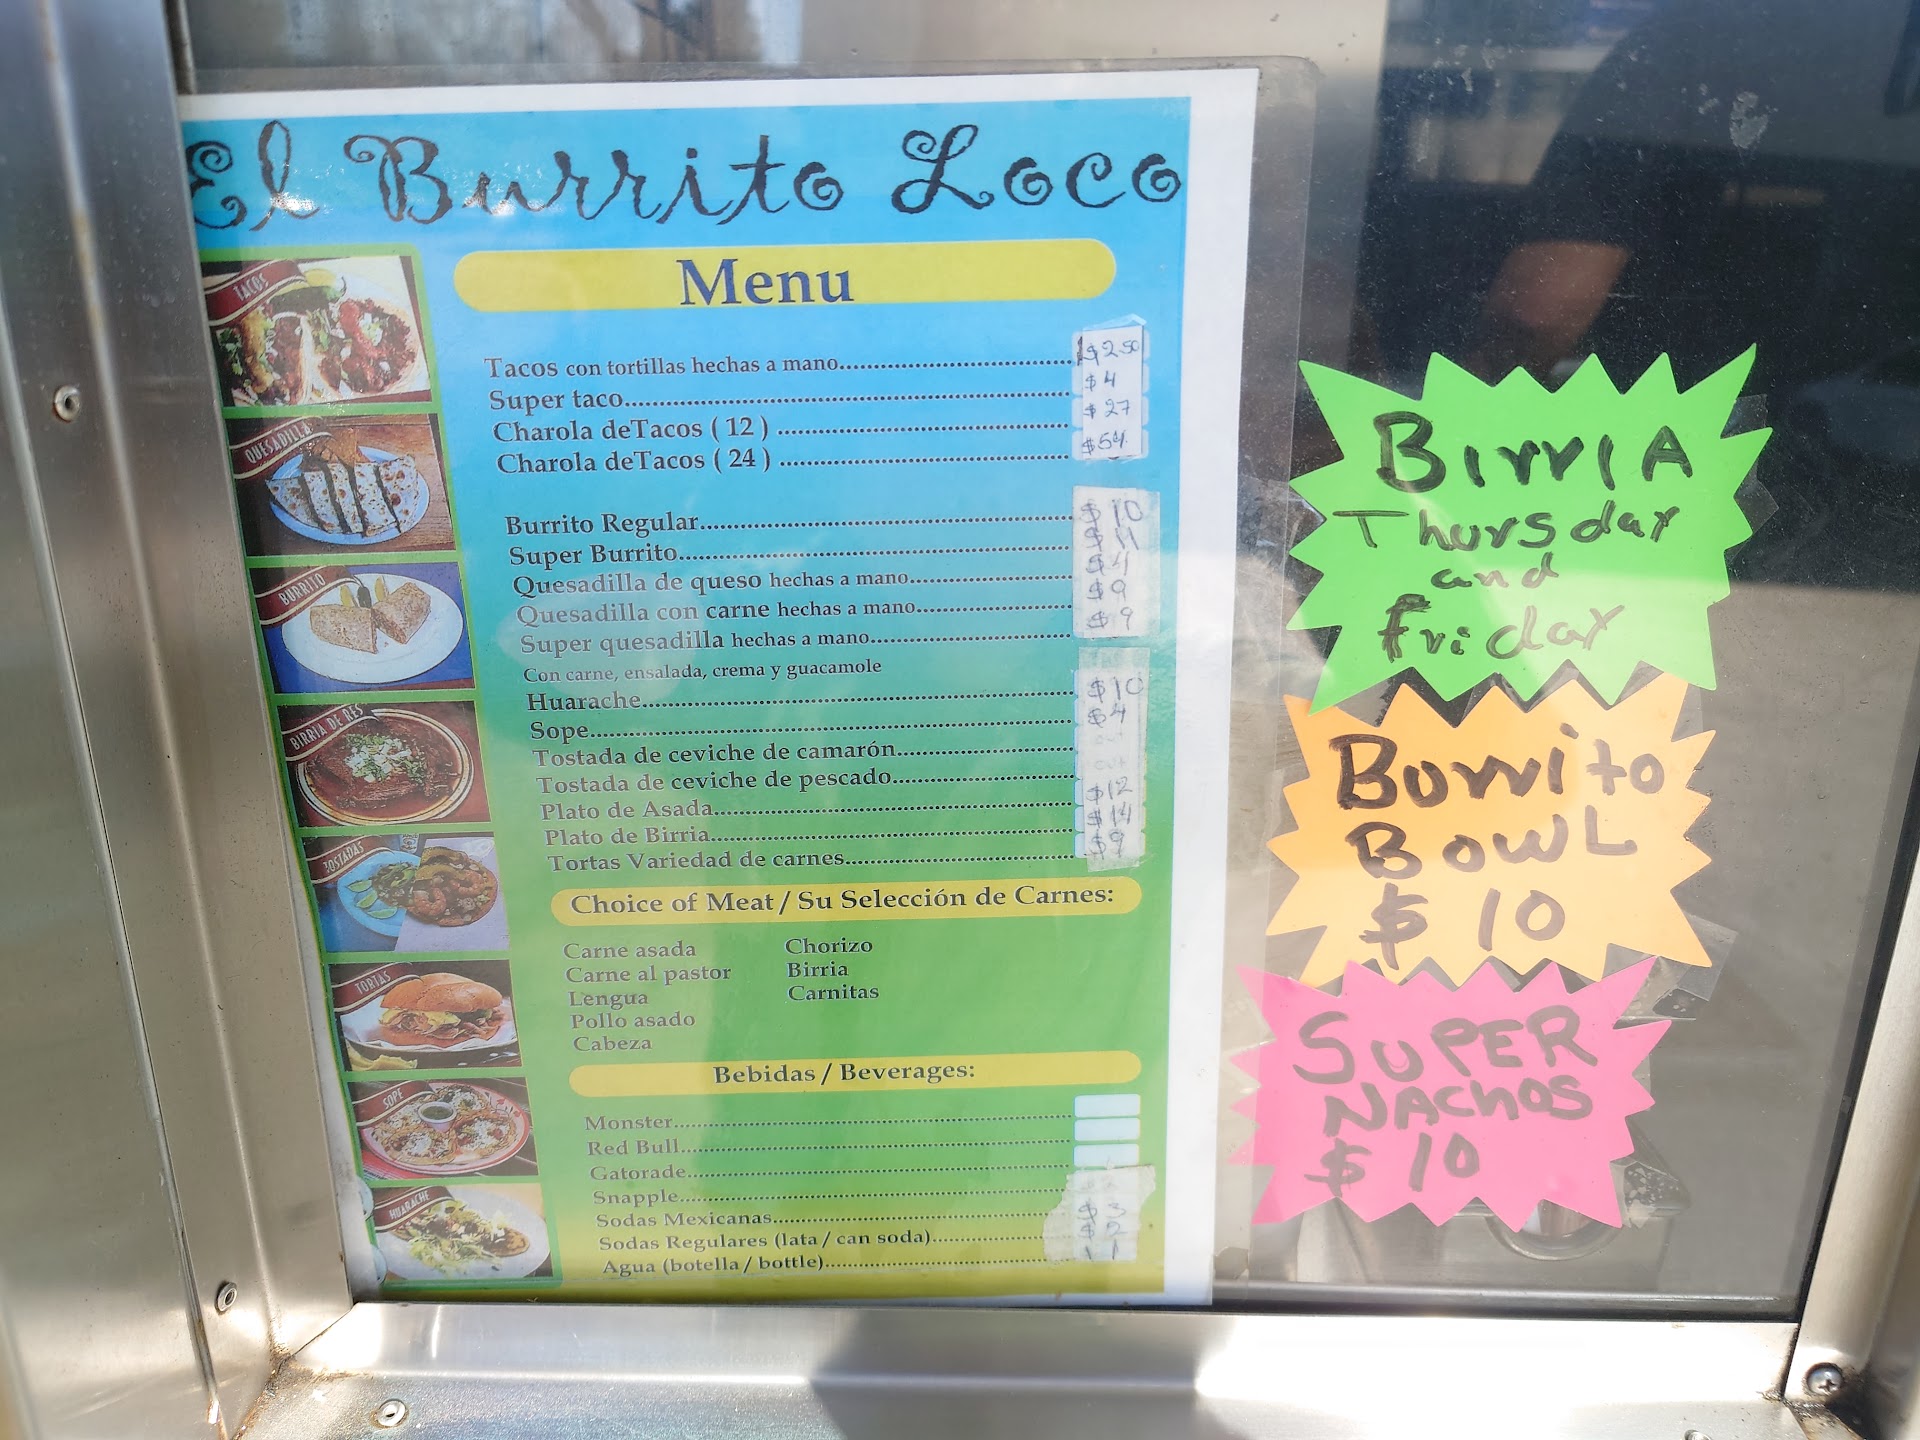 El Burrito Loco
Menu
TACOS
QUESADILLA
BURRITO
BIRRIA DE RES
TOSTADAS
TORTAS
SOPE
HUARACHE
Tacos con tortillas hechas a mano.......... $2.50
Super taco.......... $4
Charola deTacos ( 12 ) .......... $27
Charola deTacos ( 24 ) .......... $54
Burrito Regular.......... $10
Super Burrito.......... $11
Quesadilla de queso hechas a mano.......... $4
Quesadilla con carne hechas a mano.......... $9
Super quesadilla hechas a mano.......... $9
Con carne, ensalada, crema y guacamole
Huarache.......... $10
Sope.......... $4
Tostada de ceviche de camarón.......... out
Tostada de ceviche de pescado.......... out
Plato de Asada.......... $12
Plato de Birria.......... $14
Tortas Variedad de carnes.......... $9
Choice of Meat / Su Selección de Carnes:
Carne asada
Carne al pastor
Lengua
Pollo asado
Cabeza
Chorizo
Birria
Carnitas
Bebidas / Beverages:
Monster..........
Red Bull..........
Gatorade..........
Snapple..........
Sodas Mexicanas.......... $3
Sodas Regulares (lata / can soda).......... $2
Agua (botella / bottle)..........
BIrrIA
Thursday
and
friday
BurriTo
BowL
$ 10
SuPER
NAchos
$ 10